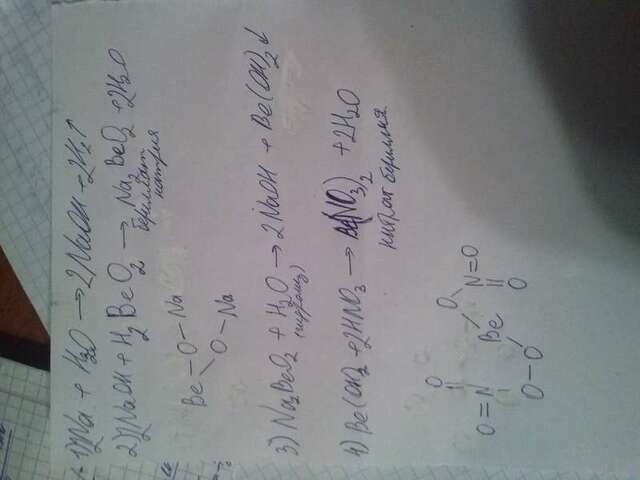 1) 2Na + H₂O → 2NaOH + 2H₂↑
2) 2NaOH + H₂BeO₂ → Na₂BeO₂ + 2H₂O
бериллат натрия
Be – O – Na
O – Na
3) Na₂BeO₂ + H₂O → 2NaOH + Be(OH)₂↓
(гидролиз)
4) Be(OH)₂ + 2HNO₃ → Be(NO₃)₂ + 2H₂O
нитрат бериллия
O O N=O
O=N Be O
O–O